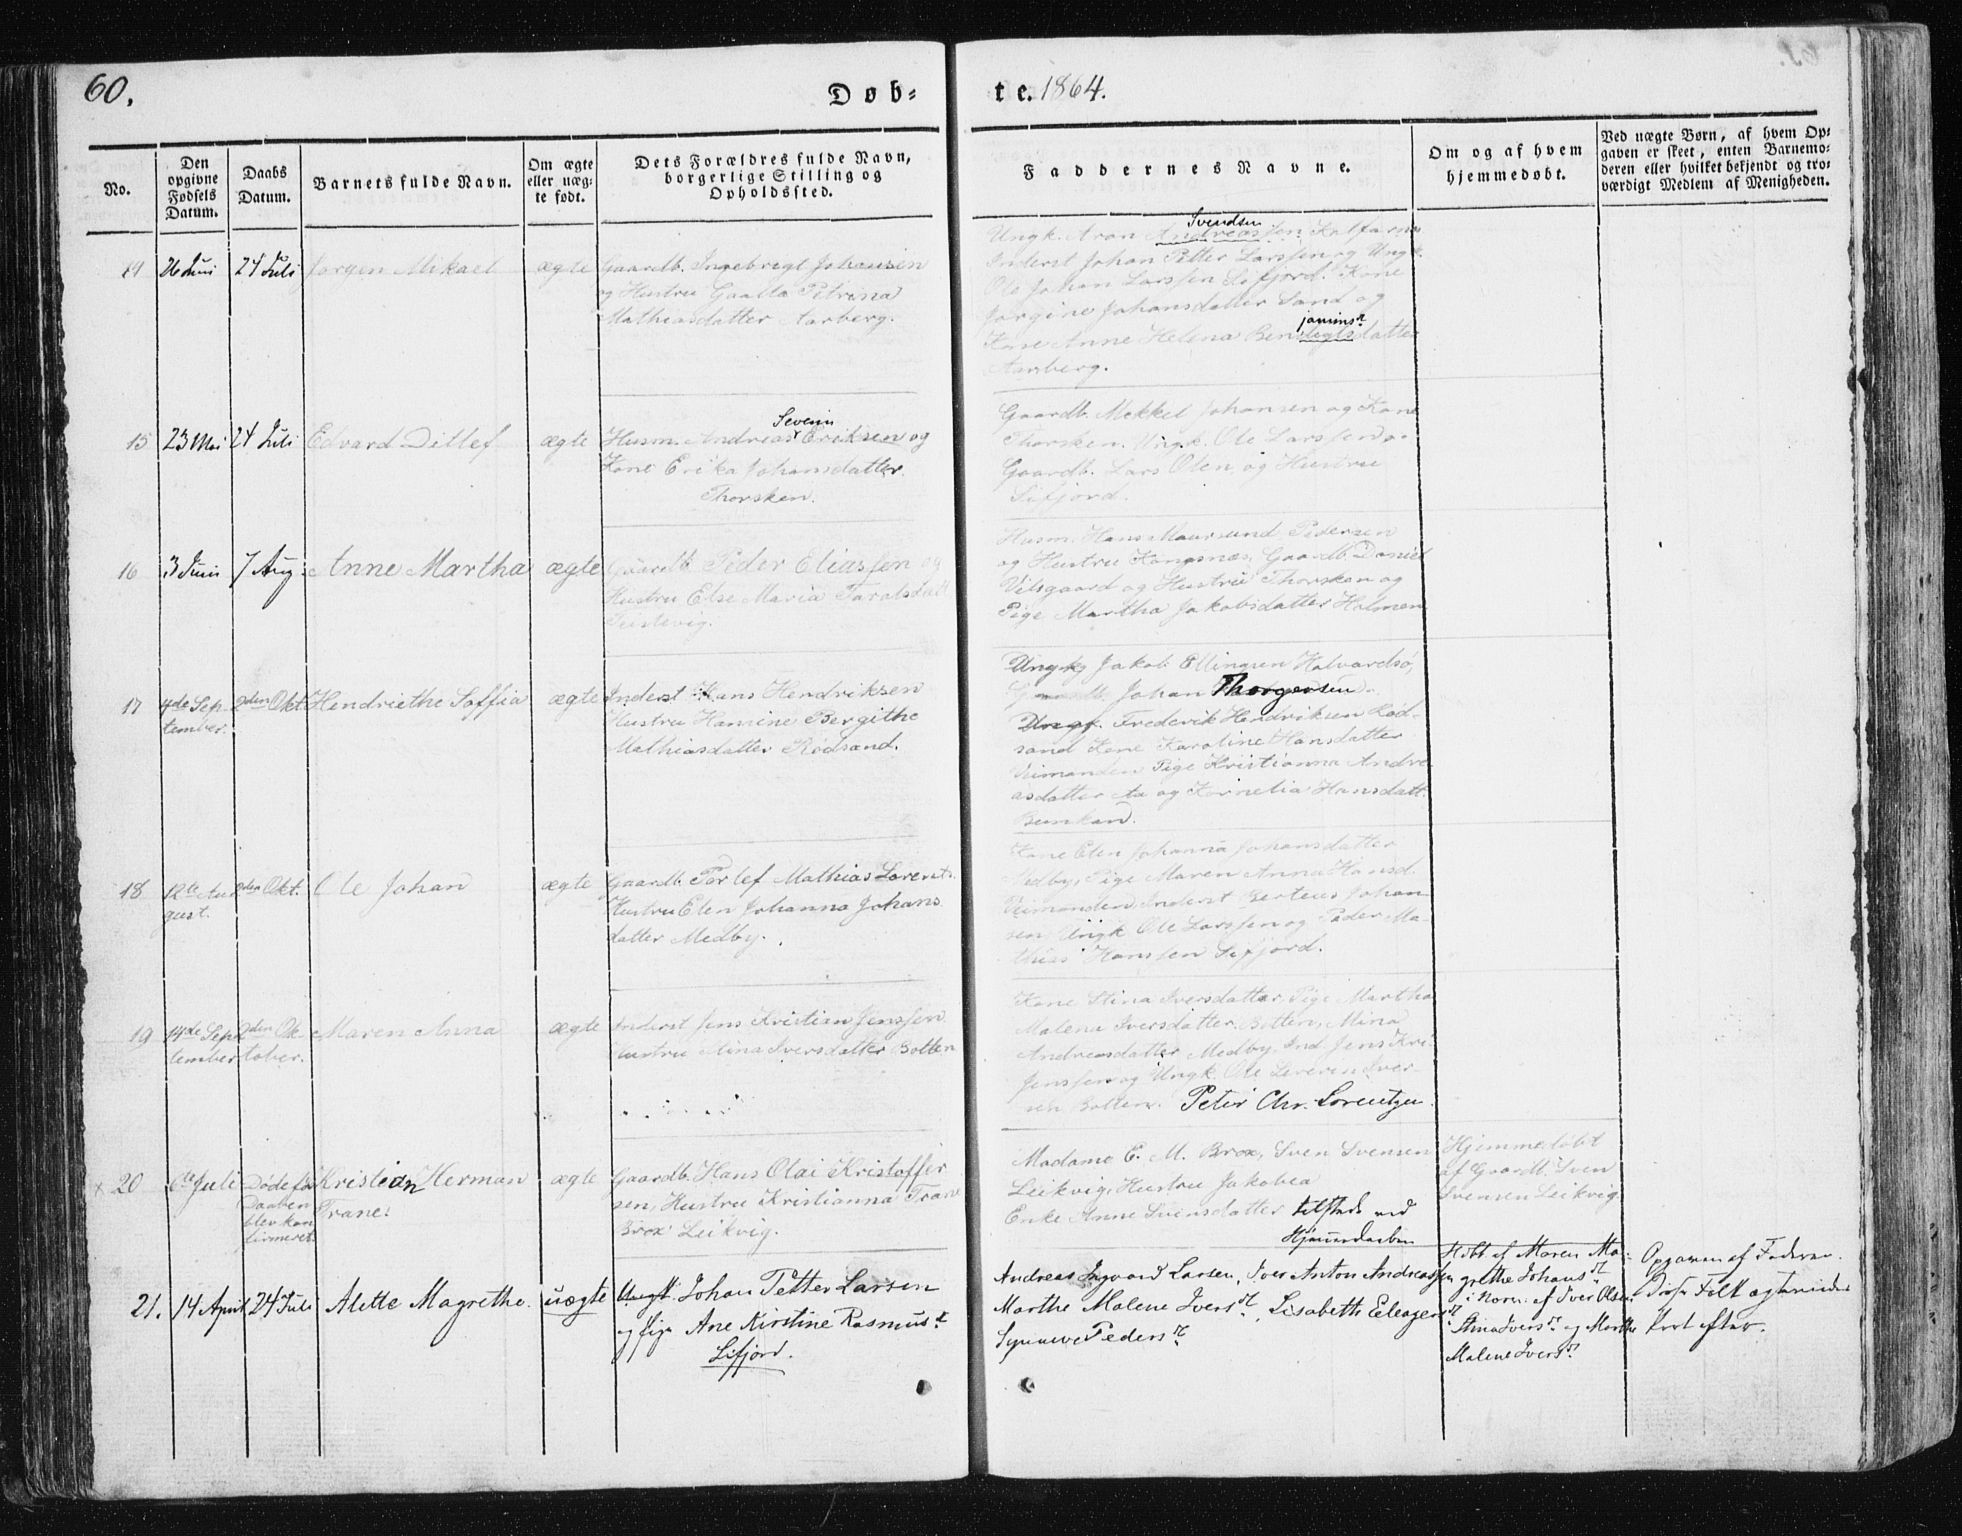 60.
Døb-
te. 1864.
No.
Den opgivne Fødsels Datum.
Daabs Datum.
Barnets fulde Navn.
Om ægte eller uæg- te født.
Dets Forældres fulde Navn, borgerlige Stilling og Opholdssted.
Faddernes Navne.
Om og af hvem hjemmedøbt.
Ved uægte Børn, af hvem Op- gaven er skeet, enten Barnemo- deren eller hvilket bekjendt og tro- værdigt Medlem af Menigheden.
26 Juni
24 Juli
Jørgen Mikael
ægte
Gaardb. Ingebrigt Johansen
og Hustru
Petrina
Mathiasdatter Aarberg.
Svendsen
Ungk. Aron Andreassen Kalfarnes
Inderst Johan Petter Larssen og Ungk.
Ole Johan Larssen Sifjord. Kone
Jørgine Johansdatter Sand og
jamins
Kone Anne Helena Bendigtsdatter
Aarberg.
15
23 Mai
24 Juli
Edvard Ditlef
ægte
Severin
Husm. Andreas Eriksen og
Kone Erika Johansdatter
Thorsken.
Gaardb. Mekkel Johansen og Kone
Thorsken. Ungk. Ole Larssen o.
Gaardb. Lars Olen og Hustru
Sifjord.
16
3 Juni
7 Aug.
Anne Martha
ægte
Gaardb. Peder Eliassen og
Hustru Else Maria Taralsdatt
Teistevig.
Husm. Hans Maursund Pedersen
og Hustru Kongsnæs, Gaardb. Daniel
Vilsgaard og Hustru Thorsken og
Pige Martha Jakobsdatter Holmen
17
4de Sep-
tember.
2den Okt
Hendriethe Soffia
ægte
Inderst Hans Hendriksen
Hustru Hansine Bergithe
Mathiasdatter Rødsand.
Ungk. Jakob Ellingsen Halvardsø,
Johan Thorgersen.
Ungk. Frederik Hendriksen Rød-
sand Kone Karoline Hansdatter
Veimanden Pige Kristianna Andre
asdatter Aa og Kornelia Hansdatt.
Bunkan.
18
12te Au
gust.
2den Okt.
Ole Johan
ægte
Gaardb. Torlef Mathias Lorents.
Hustru Elen Johanna Johans
datter Medby.
Kone Elen Johanna Johansdatter
Medby, Pige Maren Anna Hansd.
Veimanden Inderst Berteus Johan
sen Ungk Ole Larssen og Peder Ma-
thias Hanssen Sifjord.
19
14de Sep
tember
2den Ok-
tober.
Maren Anna
ægte
Inderst Jens Kristian Jenssen
Hustru Nina Iversdatter Botten
Kone Stina Iversdatter, Pige Martha
Malena Iversdatter Botten, Mina
Andreasdatter Medby, Ind. Jens Kri
Jenssen og Ungk. Ole Severin Iver-
sen Botten. Peter Chr. Lorentzen.
x 20
6te Juli
Døde før
Daaben
blev kon
firmeret.
Kristian Herman
Trane.
ægte
Gaardb. Hans Olai Kristoffer
sen, Hustru Kristianna Trane
Brox Leikvig.
Madame E. M. Brox, Sven Svensen
Leikvig, Hustru Jakobea
Enke Anne Svensdatter tilstede ved
Hjemmedaaben
Hjemmedøbt
af Gaardb. Sven
Svensen Leikvig
21.
14 April
24 Juli
Alette Magrethe.
uægte
Ungk. Johan Petter Larsen
og Pige Ane Kirstine Rasmusd.
Sifjord.
Andreas Ingvard Larsen, Iver Anton Andreassen
Marthe Malene Iversd., Lisabeth Eleasersd.
Synnøve Pedersd.
Hdbt af Maren Ma-
grethe Johansd.
i Nærv. af Iver Olsen
Stina Iversd. og Marthe
Malene Iversd.
Opgaven af Faderen.
kort efter.